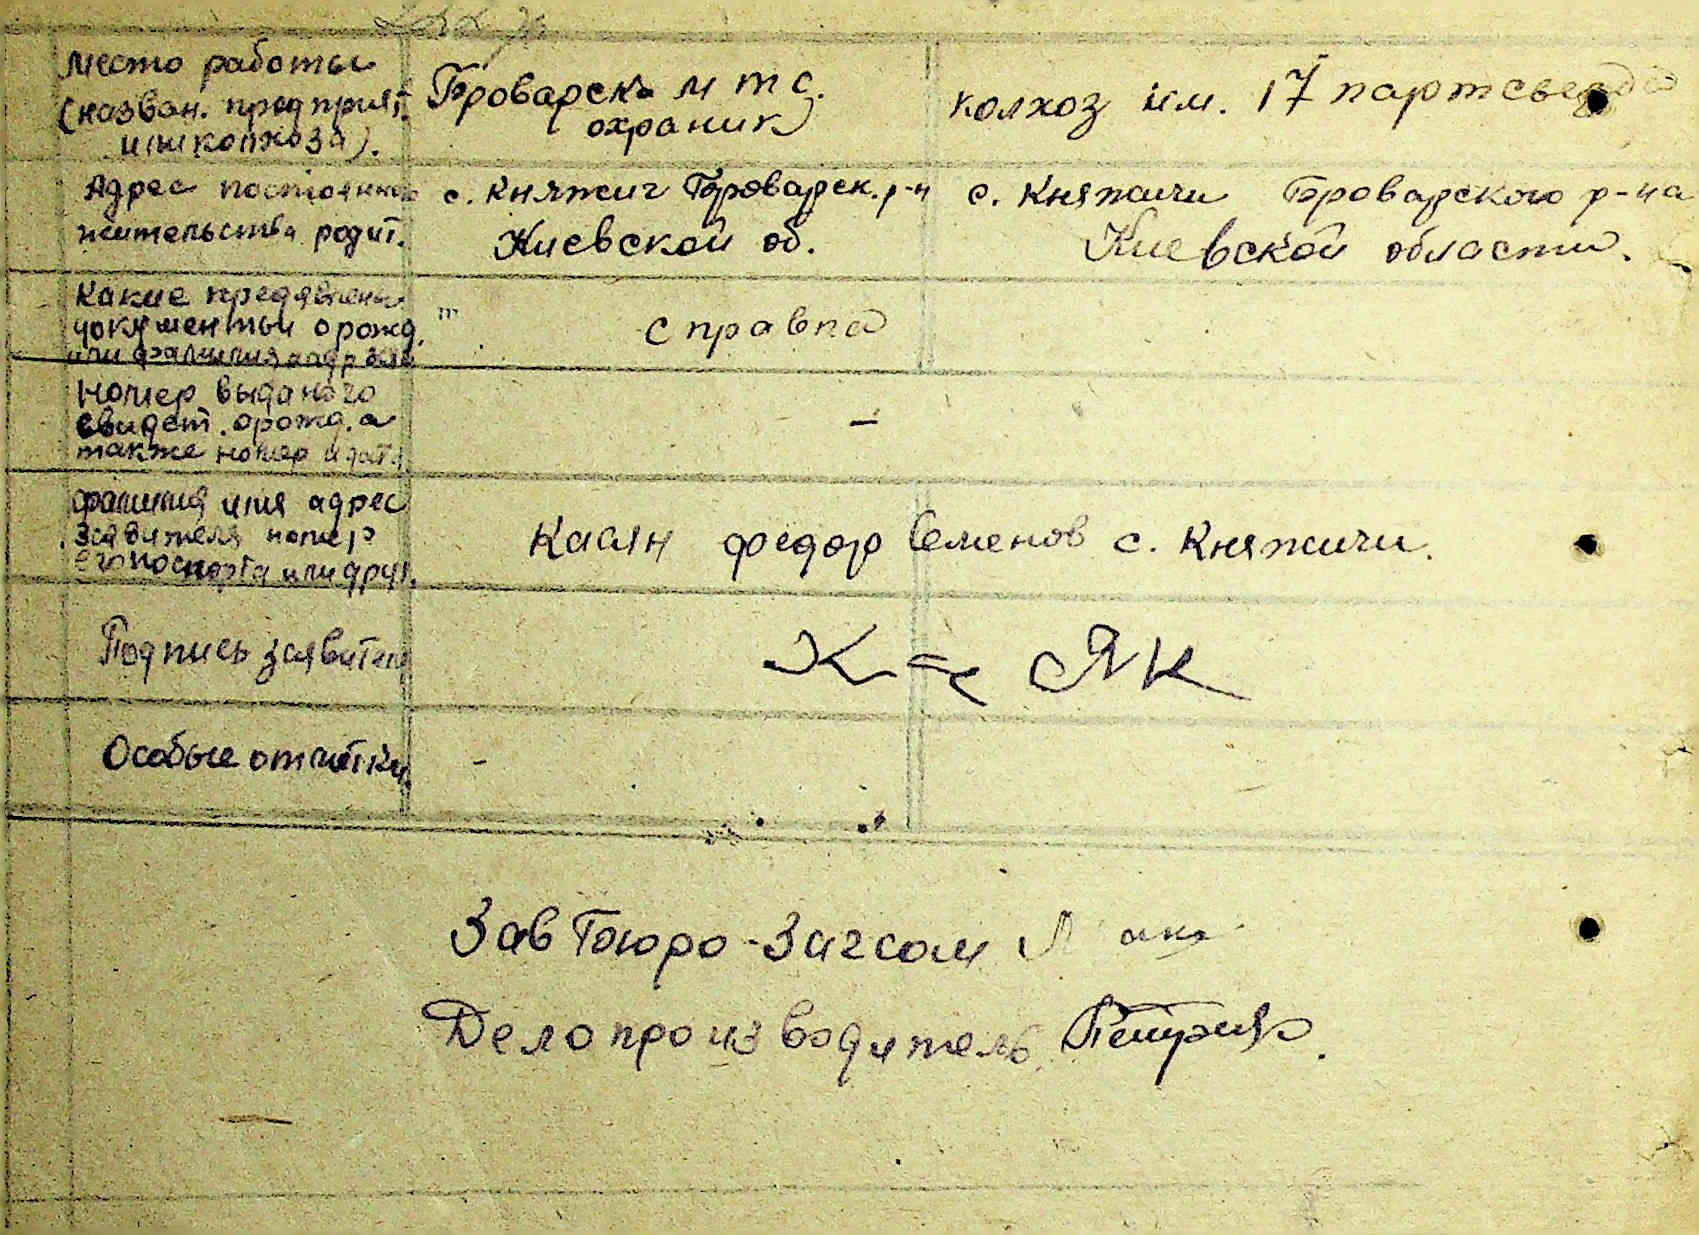 место работы
(назван. предприят.
или колхоза).
Броварск. м т с.
охраник
колхоз им. 17 партсъезда
Адрес постоянного
жительства родит.
с. Княжич Броварск. р-н
Киевской об.
с. Княжичи Броварского р-на
Киевской области.
Какие предявлены
документы о рожд.
или фамилия
справка
Номер выданого
свидет. о рожд. а
также номер и дата
–
фамилия имя адрес
заявителя номер
его паспорта или друг.
Касян Федор Семенов с. Княжичи.
Подпись заявителя
Особые отметки
-
Зав Бюро-Загсом
Делопроизводитель